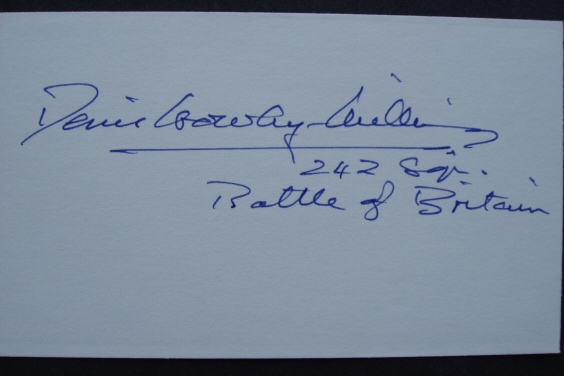 Denis Crowley-Milling
242 Sqn.
Battle of Britain